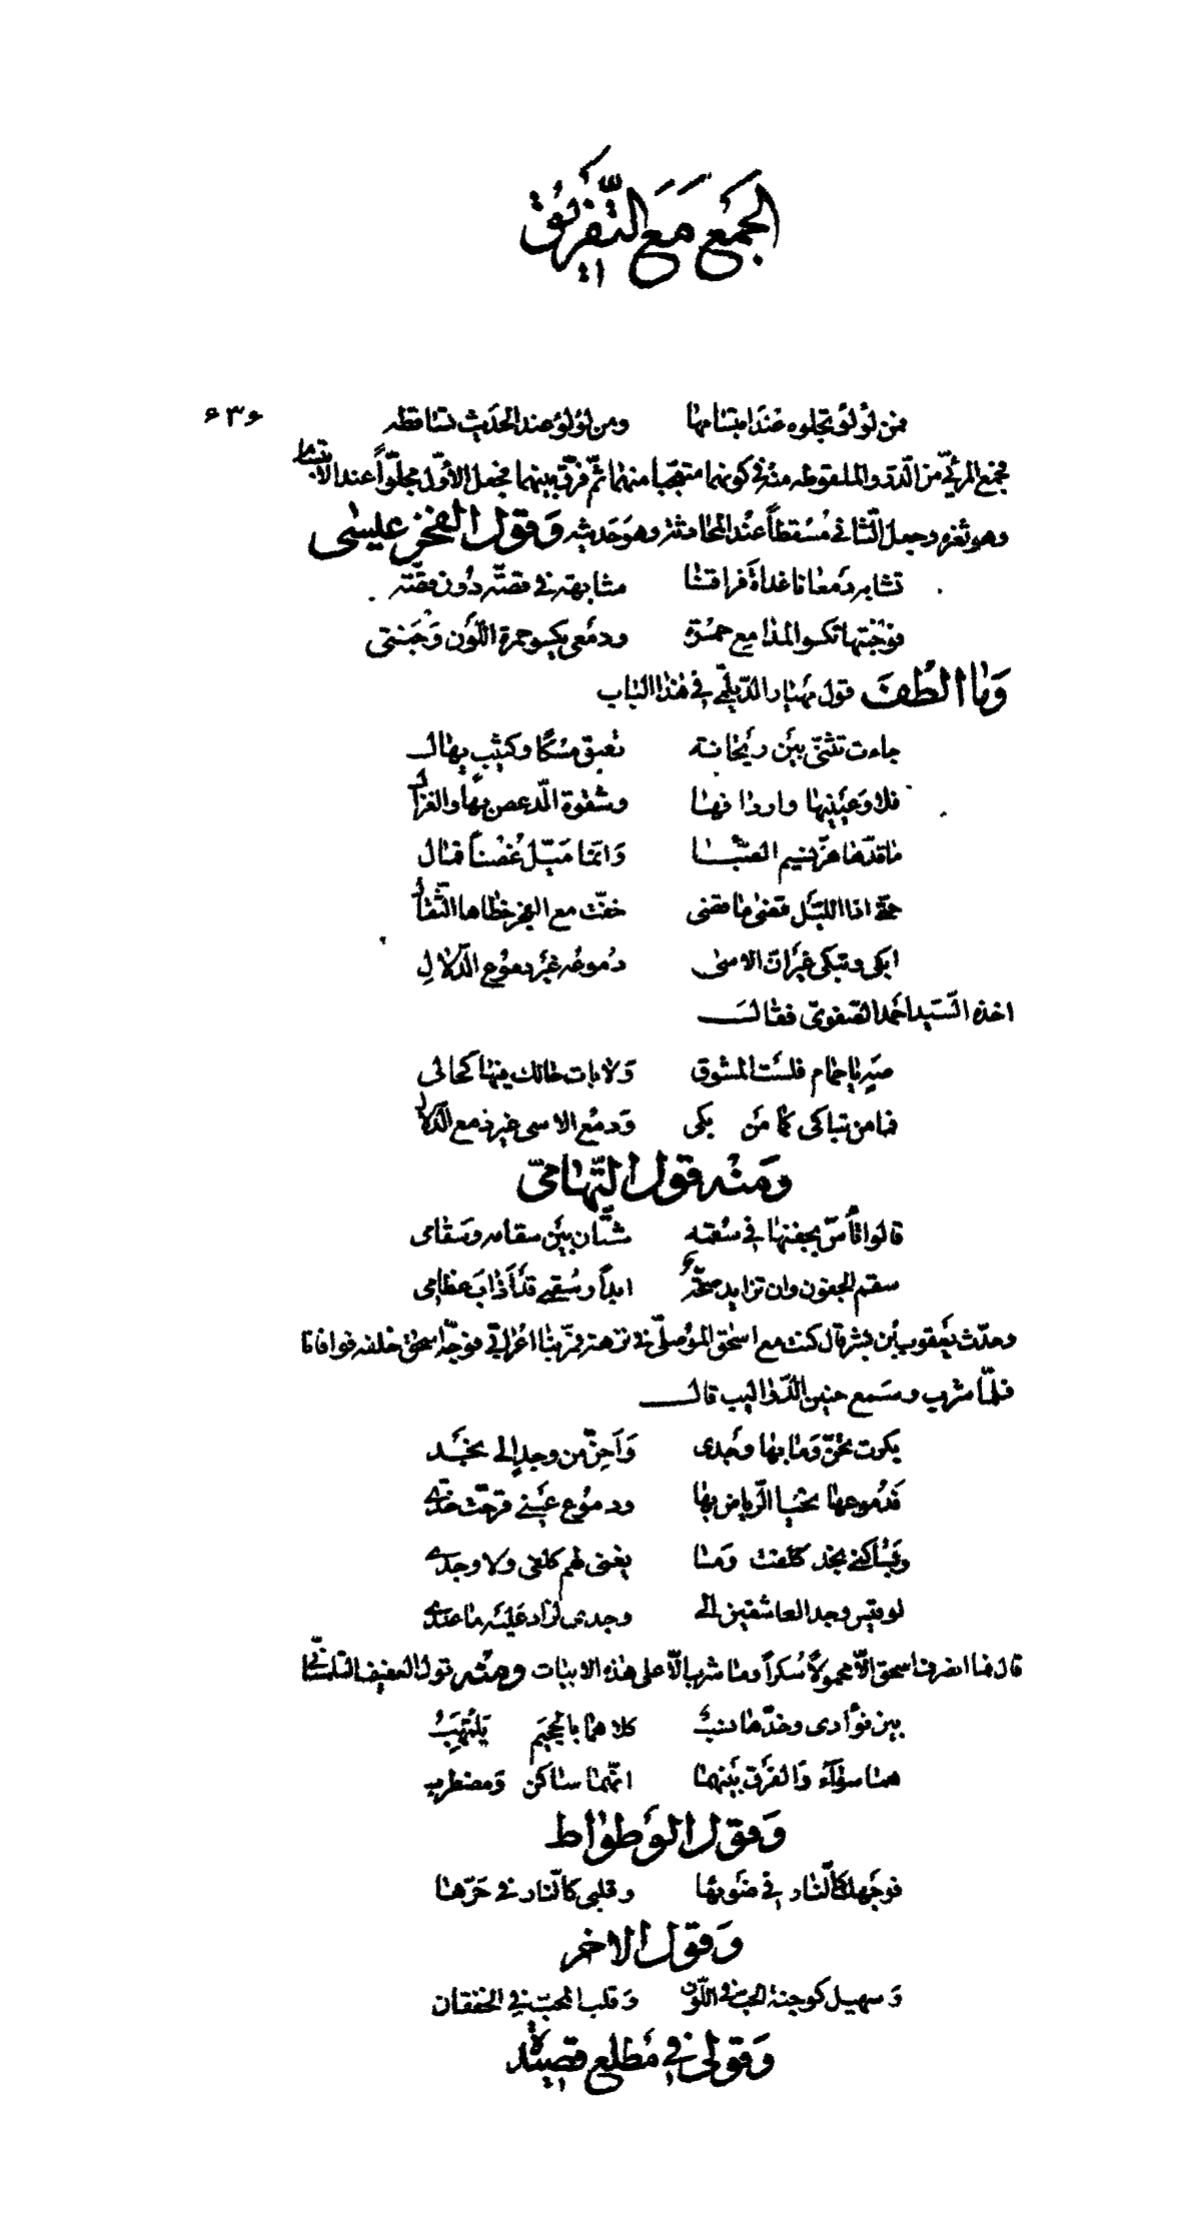 الجَمْعُ مَعَ التَّفْرِيقِ
۶۳۶
فمن لؤلؤ تجلوه عند ابتسامها ومن لؤلؤ عند الحديث تساقطه
فجمع المرئيّ من الدّرّ والملقوطه منه في كونهما متعجّبا منهما ثمّ فرّق بينهما فجعل الأوّل مجلوّاً عند الابتسام
وهو ثغره وجعل الثّاني مُسْقَطاً عند المحادثة وهو حديثه وَقول الفخر عيسى
تشابه دَمعانا غداة فراقنا مشابهة في قصّة دُون قصّة
فوَجْنتها تكسو المدامع حمرة ودمعي يكسو حمرة اللّون وَجْنتي
وَمٰا الطفَ قول مهيار الدّيلميّ في هٰذا الباب
جاءت تثنّى بين رَيْحانة تعبق مسكا وكثيب يهال
فلا وعَيْنيها واردافها وشقوة الدّعص بها والغزال
ما قدّها هزّ نسيم الصّبا وَانّما ميّل غُصْناً فمال
حتّى اذا الليل قضى ما قضى خفّت مع الفجر خطاها الثّقال
ابكى وتبكى غير انّ الاسى دُموعُه غير دموع الدّلالِ
اخذه السّيد احمد الصّفوىّ فقال
صَهٍ يا حمام فلست المشوق وَلا بات حالك فيها كحالى
فما من تباكى كما مَن بكى وَدمْع الاسى غير دمع الدّلال
ومَنْه قول التّهامىّ
قالوا تأسّ بجفنها في سُقمه شتّان بين سقامه وسَقامى
سقم الجفون وان تزايد صحّة ابداً وسُقمى قد اَذابَ عظامى
وحدّث يَعْقوب بن بشر قال كنت مع اسحٰق المُوْصلىّ في نزهة فمرّ بنا اعرابى فوجّه اسحٰق خلفه فوافانا
فلمّا شرب وسَمع حنين الدّواليب قال
بكرت تحنّ وَما بها وَجدى وَاَحِنّ من وجدٍ الى نجْد
فَدُموعها تحيا الرّياض بها ودموع عينى قرحت خدّى
وبسٰاكنى نجد كلفت وَما يغنى لهم كلفى ولا وجدى
لو قيس وجد العاشقين الى وجدى لزاد عليه ما عندى
قال فما انصرف اسحٰق الاّ محمولاً سُكراً وما شرب الاّ على هٰذه الابيات وَمنْه قول العفيف التلمسانىّ
بين فؤادى وخدّها نسب كلاهما بالجحيم يلْتهِبُ
هما سواءٌ وَالفرق بينهما انّهما ساكن وَمضطرب
وَقول الوَطواط
فوجهك كالنّار في ضوئها وقلبى كالنّار في حَرّها
وَقول الاخر
وَسهيل كوجنة الحبّ في اللّون وَقلب المحبّ في الخفقان
وَقولى في مَطلع قصيدة